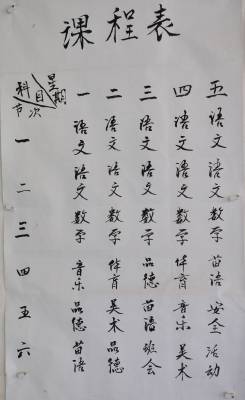 课程表
星期 科目 节次 一 二 三 四 五
一 语文 语文 语文 语文 语文
二 语文 语文 语文 语文 语文
三 数学 数学 数学 数学 数学
四 音乐 体育 品德 体育 苗语
五 品德 美术 苗语 音乐 安全
六 苗语 品德 班会 美术 活动